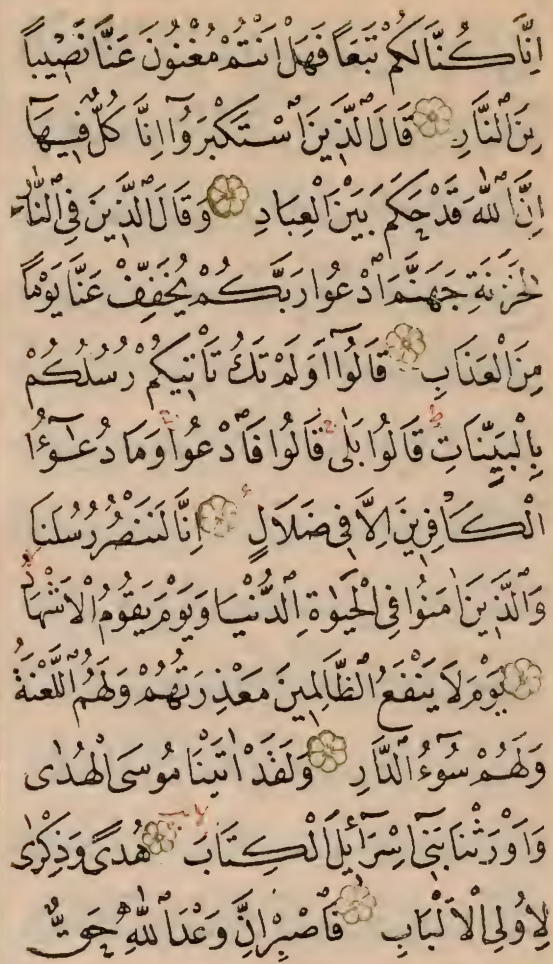 اِنَّا كُنَّا لَكُمْ تَبَعًا فَهَلْ اَنْتُمْ مُغْنُونَ عَنَّا نَصِيبًا
مِنَ النَّارِ قَالَ الَّذِينَ اسْتَكْبَرُوٓا اِنَّا كُلٌّ فِيهَٓا
اِنَّ اللّٰهَ قَدْ حَكَمَ بَيْنَ الْعِبَادِ وَقَالَ الَّذِينَ فِي النَّارِ
لِخَزَنَةِ جَهَنَّمَ ادْعُوا رَبَّكُمْ يُخَفِّفْ عَنَّا يَوْمًا
مِنَ الْعَذَابِ قَالُوٓا اَوَلَمْ تَكُ تَأْتِيكُمْ رُسُلُكُمْ
بِالْبَيِّنَاتِ ط قَالُوا بَلٰى ج قَالُوا فَادْعُوا ج وَمَا دُعٰٓؤُا
الْكَافِرِينَ اِلَّا فِي ضَلَالٍ ع اِنَّا لَنَنْصُرُ رُسُلَنَا
وَالَّذِينَ اٰمَنُوا فِي الْحَيٰوةِ الدُّنْيَا وَيَوْمَ يَقُومُ الْاَشْهَادُ
يَوْمَ لَا يَنْفَعُ الظَّالِمِينَ مَعْذِرَتُهُمْ وَلَهُمُ اللَّعْنَةُ
وَلَهُمْ سُٓوءُ الدَّارِ وَلَقَدْ اٰتَيْنَا مُوسَى الْهُدٰى
وَاَوْرَثْنَا بَنِٓي اِسْرَٓائِلَ الْكِتَابَ هُدًى وَذِكْرٰى
لِاُولِي الْاَلْبَابِ فَاصْبِرْ اِنَّ وَعْدَ اللّٰهِ حَقٌّ